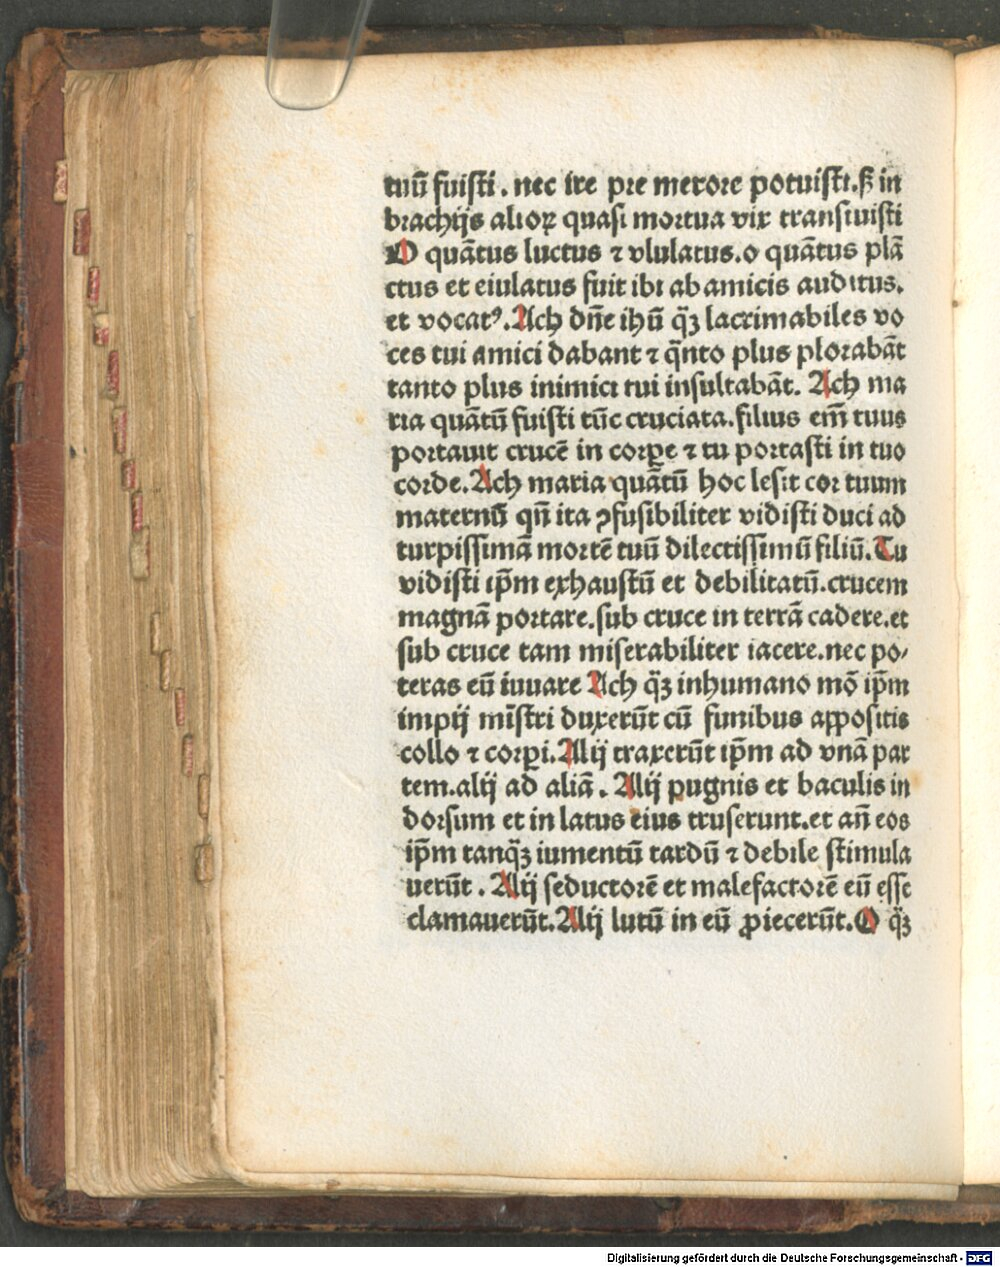 tuū fuisti. nec ire pre merore potuisti. ß in
brachijs alioꝝ quasi mortua vix transiuisti
O quātus luctus ⁊ vlulatus. o quātus plā
ctus et eiulatus fuit ibi ab amicis auditus.
et vocatꝰ. Ach dn̄e ihū qꝫ lacrimabiles vo
ces tui amici dabant ⁊ q̄nto plus plorabāt
tanto plus inimici tui insultabāt. Ach ma
ria quātū fuisti tūc cruciata. filius em̄ tuus
portauit crucē in corꝑe ⁊ tu portasti in tuo
corde. Ach maria quātū hoc lesit cor tuum
maternū qn̄ ita ꝯfusibiliter vidisti duci ad
turpissimā mortē tuū dilectissimū filiū. Tu
vidisti ip̄m exhaustū et debilitatū. crucem
magnā portare. sub cruce in terrā cadere. et
sub cruce tam miserabiliter iacere. nec po⸗
teras eū iuuare Ach qꝫ inhumano mō ip̄m
impij mīstri duxerūt cū funibus appositis
collo ⁊ corꝑi. Alij traxerūt ip̄m ad vnā par
tem. alij ad aliā. Alij pugnis et baculis in
dorsum et in latus eius truserunt. et an̄ eos
ip̄m tanqꝫ iumentū tardū ⁊ debile stimula
uerūt. Alij seductorē et malefactorē eū esse
clamauerūt. Alij lutū in eū ꝓiecerūt. O qꝫ
Digitalisierung gefördert durch die Deutsche Forschungsgemeinschaft - DFG